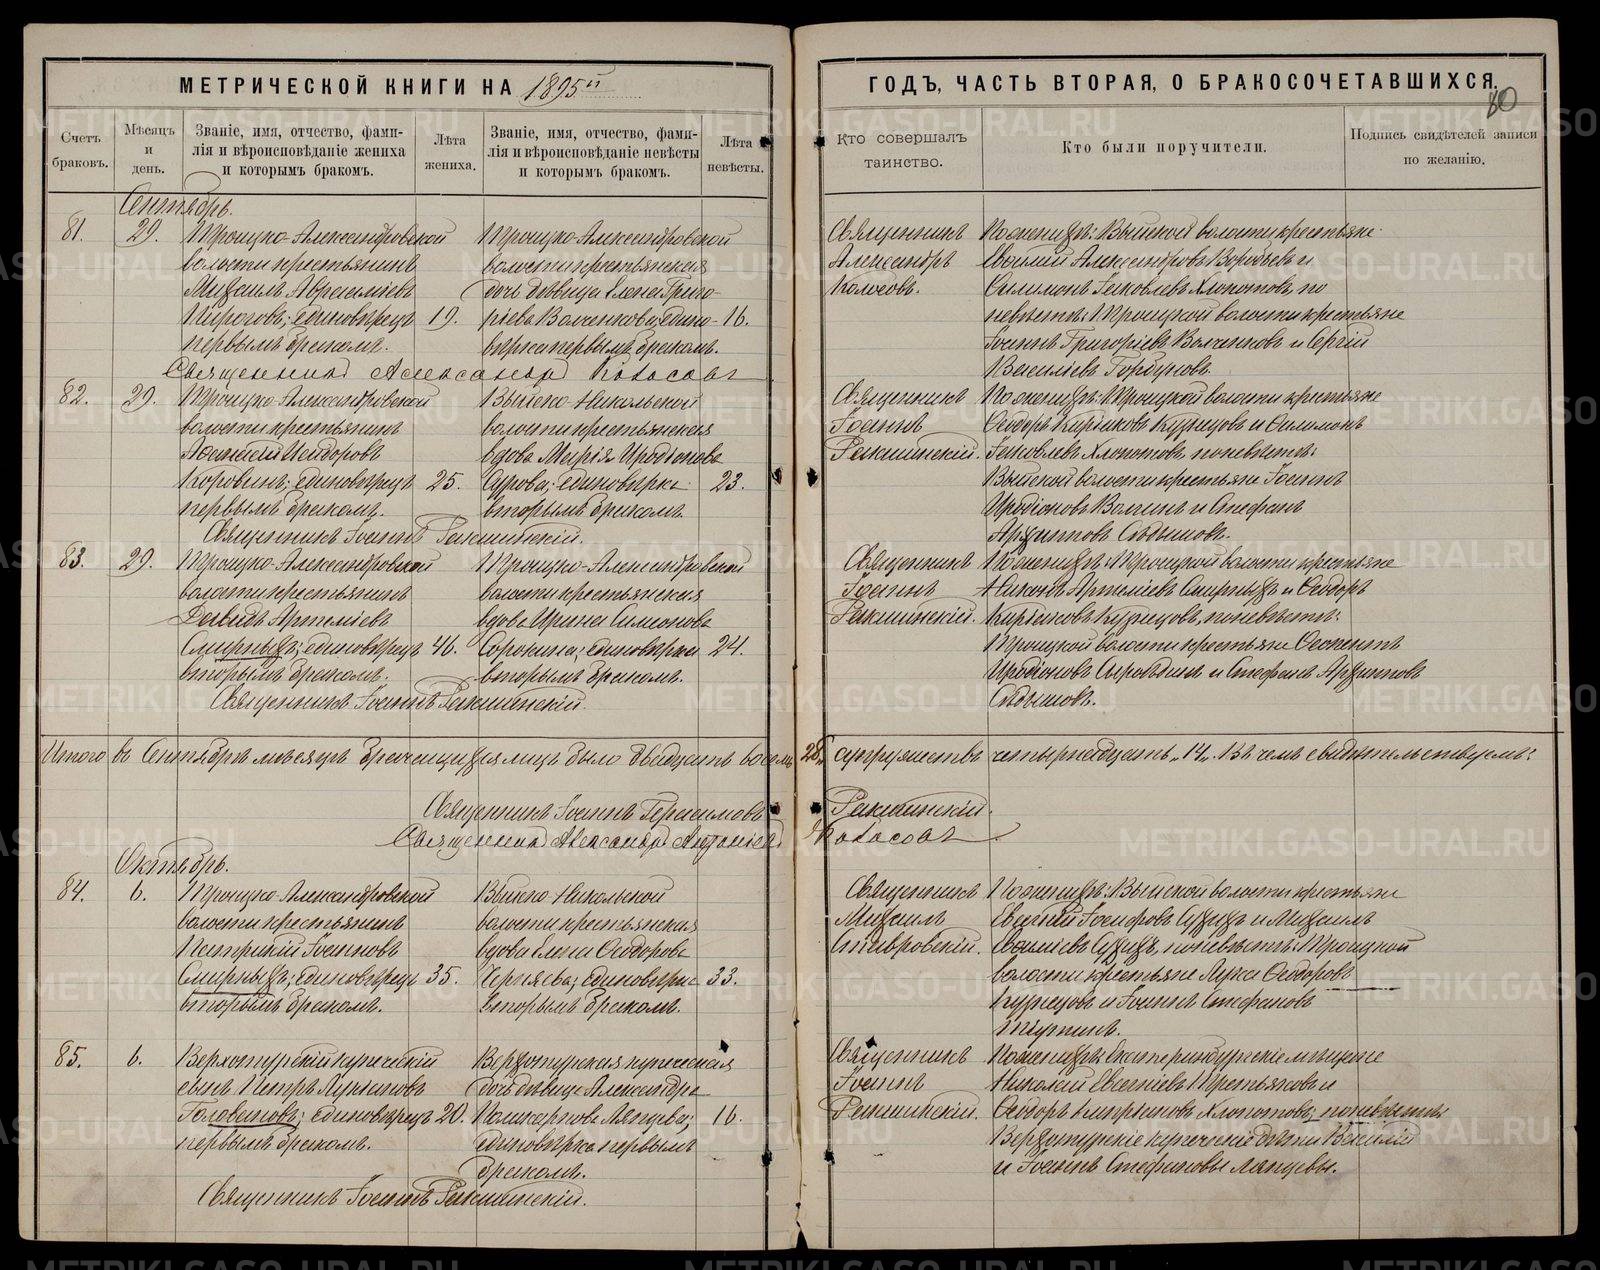 МЕТРИЧЕСКОЙ КНИГИ НА 1895й
ГОДЪ, ЧАСТЬ ВТОРАЯ, О БРАКОСОЧЕТАВШИХСЯ.
80
Счетъ браковъ.
Мѣсяцъ и день.
Званіе, имя, отчество, фами-
лія и вѣроисповѣданіе жениха
и которымъ бракомъ.
Лѣта жениха.
Званіе, имя, отчество, фами-
лія и вѣроисповѣданіе невѣсты
и которымъ бракомъ.
Лѣта невѣсты.
Кто совершалъ
таинство.
Кто были поручители.
Подпись свидѣтелей записи
по желанію.
Сентябрь.
81.
29.
Троицко-Александровской
волости крестьянинъ
Михаилъ
Пироговъ; единовѣрецъ
первымъ бракомъ.
19.
Троицко-Александровской
волости крестьянская
дочь дѣвица Елена Григо-
ріева Волченкова; едино-
вѣрка первымъ бракомъ.
16.
Священникъ
Александръ
Колосовъ.
По женихѣ: Выйской волости крестьяне
Александровъ Воробьевъ и
Филимонъ Іаковлевъ Хлопотовъ, по
невѣстѣ: Троицкой волости крестьяне
Іоаннъ Григоріевъ Волченковъ и Сергій
Василіевъ Горбуновъ.
Священникъ Александръ Колосовъ
82.
29.
Троицко-Александровской
волости крестьянинъ
Исидоровъ
Коровинъ; единовѣрецъ
первымъ бракомъ.
25.
Выйско-Никольской
волости крестьянская
вдова Марія Иродіонова
Сурова; единовѣрка
вторымъ бракомъ.
23.
Священникъ
Іоаннъ
По женихѣ: Троицкой волости крестьяне
Ѳеодоръ Киріаковъ Кузнецовъ и Филимонъ
Іаковлевъ Хлопотовъ, по невѣстѣ:
Выйской волости крестьяне Іоаннъ
Иродіоновъ и Стефанъ
Архиповъ
Священникъ Іоаннъ
83.
29.
Троицко-Александровской
волости крестьянинъ
Давидъ Артеміевъ
Смирныхъ; единовѣрецъ
вторымъ бракомъ.
46.
Троицко-Александровской
волости крестьянская
вдова Ирина Симеонова
Сорокина; единовѣрка
вторымъ бракомъ.
24.
Священникъ
Іоаннъ
По женихѣ: Троицкой волости крестьяне
Никонъ Артеміевъ Смирныхъ и Ѳеодоръ
Киріаковъ Кузнецовъ, по невѣстѣ:
Троицкой волости крестьяне
Иродіоновъ и Стефанъ Архиповъ
Священникъ Іоаннъ
Итого въ Сентябрѣ мѣсяцѣ брачащихся лицъ было двадцать восемь „28„ супружествъ четырнадцать „14„. Въ чемъ свидѣтельствуемъ:
Священникъ Іоаннъ Герасимовъ
Священникъ Александръ Колосовъ
Октябрь.
84.
6.
Троицко-Александровской
волости крестьянинъ
Іоанновъ
Смирныхъ; единовѣрецъ
вторымъ бракомъ.
35.
Выйско-Никольской
волости крестьянская
вдова Елена Ѳеодорова
единовѣрка
вторымъ бракомъ.
33.
Священникъ
Михаилъ
Ставровскій.
По женихѣ: Выйской волости крестьяне
Евгеній Іосифовъ и Михаилъ
по невѣстѣ: Троицкой
волости крестьяне Лука Ѳеодоровъ
Кузнецовъ и Іоаннъ Стефановъ
85.
6.
Верхотурскій купеческій
сынъ Петръ
Головановъ; единовѣрецъ
первымъ бракомъ.
20.
Верхотурская купеческая
дочь дѣвица Александра
Поликарпова Лапцева;
единовѣрка первымъ
бракомъ.
16.
Священникъ
Іоаннъ
По женихѣ: Екатеринбургскіе мѣщане
Николай Третьяковъ и
Ѳеодоръ Хлопотовъ; по невѣстѣ:
Верхотурскіе купеческіе дѣти Василій
и Іоаннъ Стефановы Лапцевы.
Священникъ Іоаннъ
METRIKI.GASO-URAL.RU